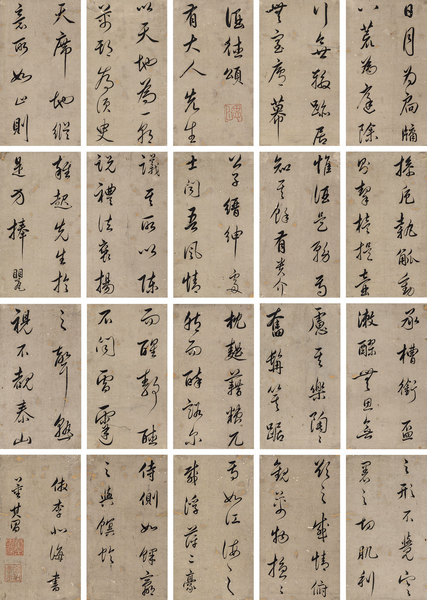 酒德頌
有大人先生
以天地為一朝
萬期為須臾
日月為扃牖
八荒為庭除
行無轍跡居
無室廬幕
天席地縱
意所如止則
操卮執觚動
則挈榼提壺
惟酒是務焉
知其餘有貴介
公子縉紳處
士聞吾風情
議其所以陳
說禮法褒揚
雜起先生於
是方捧罌
承槽銜盃
漱醪無思無
慮其樂陶陶
奮髯箕踞
枕麴藉糟兀
然而醉豁爾
而醒靜聽
不聞雷霆
之聲熟
視不覩泰山
之形不覺寒
暑之切肌利
欲之感情俯
觀萬物擾擾
焉如江海之
載浮萍二豪
侍側如蜾蠃
之與螟蛉
倣李北海書
董其昌